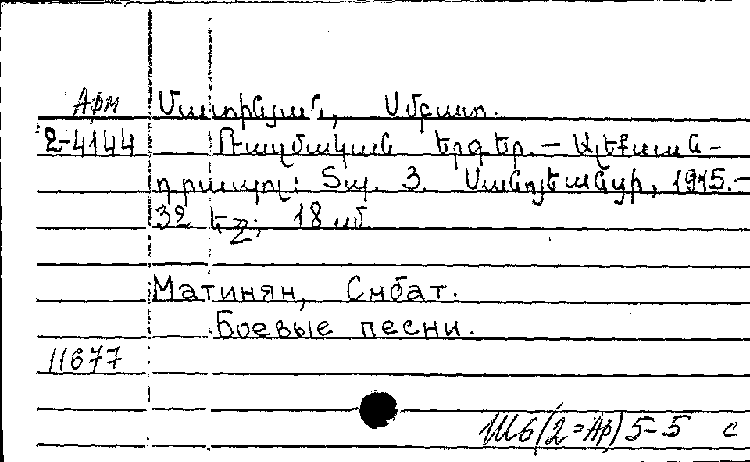 Арм Մատինյան, Սմբատ.
2-4144 Ռազմական երգեր. — Ալեքսան-
դրապոլ: Տպ. Ց. Սանոյեանցի, 1915.—
32 եջ; 18 սմ.
Матинян, Смбат.
Боевые песни.
11677
Ш6(2=Ар)5-5 с